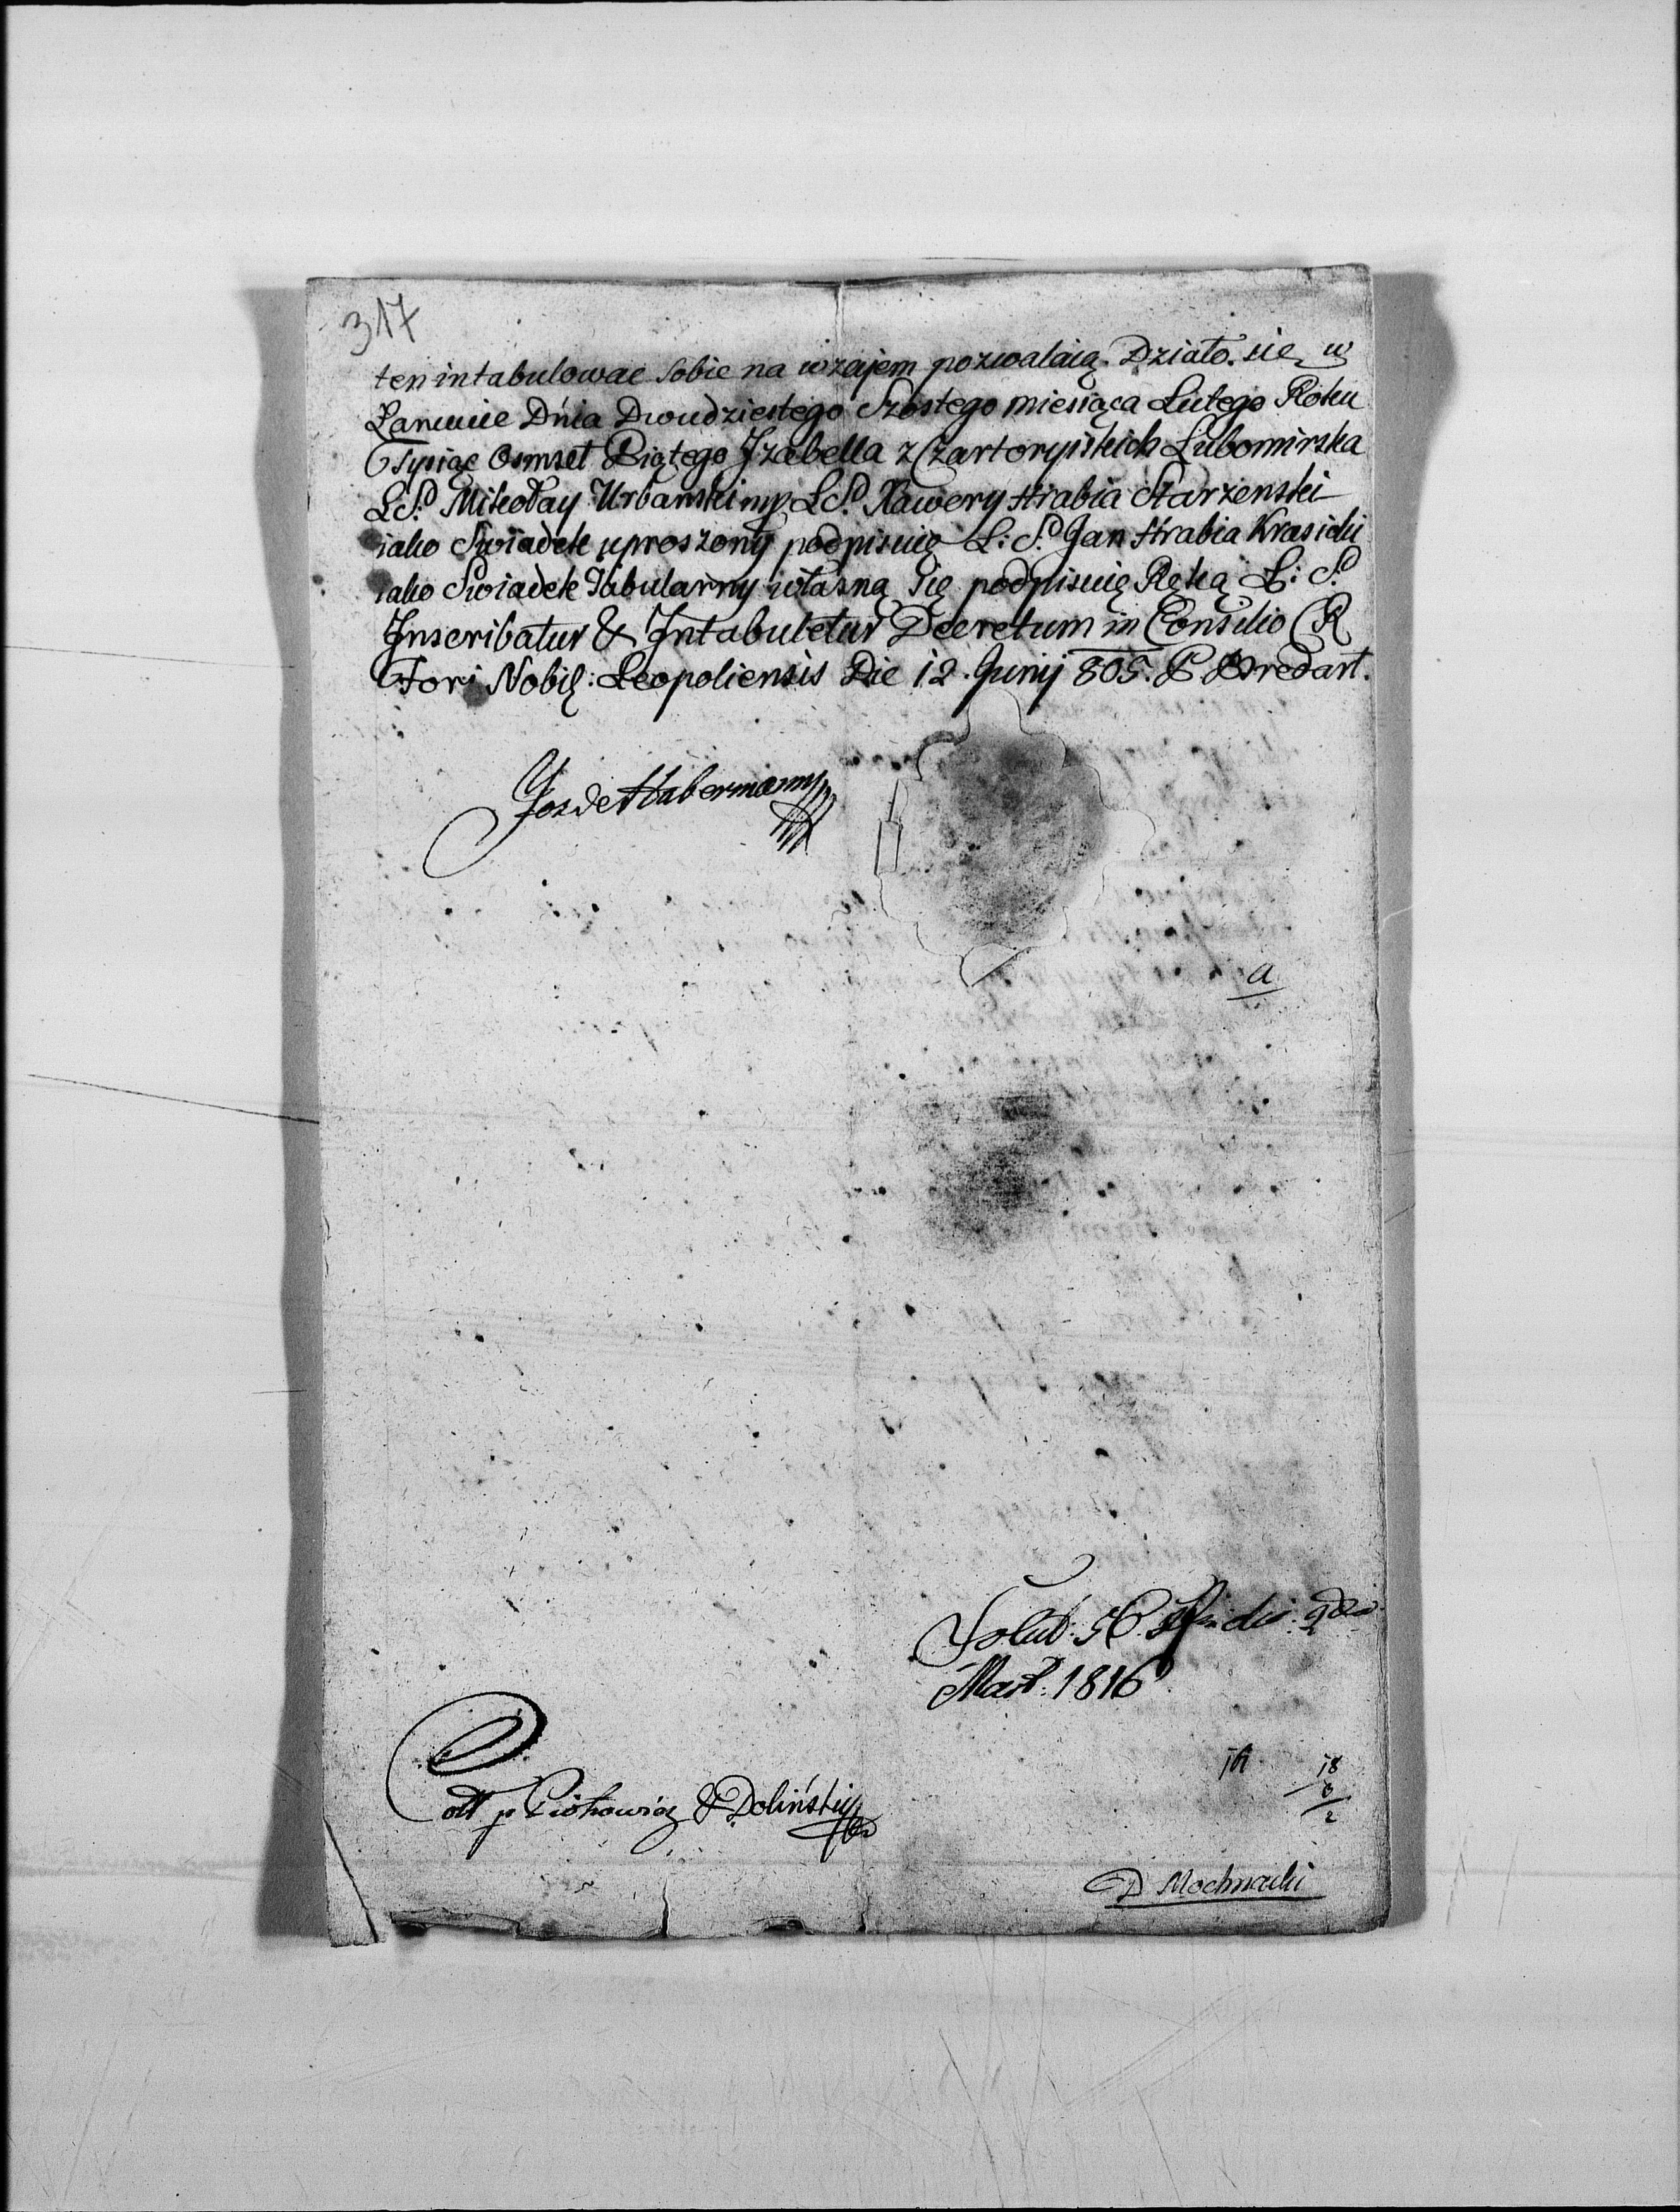 317
ten intabulowac sobie na wzajem pozwalaią. Działo. się w
Łancucie Dnia Dwudziestego Szostego miesiąca Lutego Roku
Tysiąc Osmset Piątego Jzabella z Czartoryiskich Lubomirska
LS. Mikołay Urbanski mp. LS. Xawery Hrabia Starzenski
iako Swiadek uproszony podpisuię L: S. Jan Hrabia Krasicki
iako Swiadek Tabularny własną się podpisuię Ręką L: S.
Inscribatur & Intabuletur Decretum in Consilio CR
Fori Nobil: Leopoliensis Die 12. Junij 805. P Bredart.
Jos de Habermann
a
Solut: 
Mart: 1816
18
Coll p Piotrowicz & Doliński
D Mochnacki